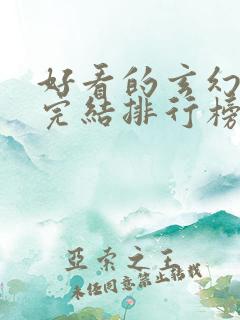 好看的玄幻
完結排行榜
亞索之王
未經同意禁止轉載